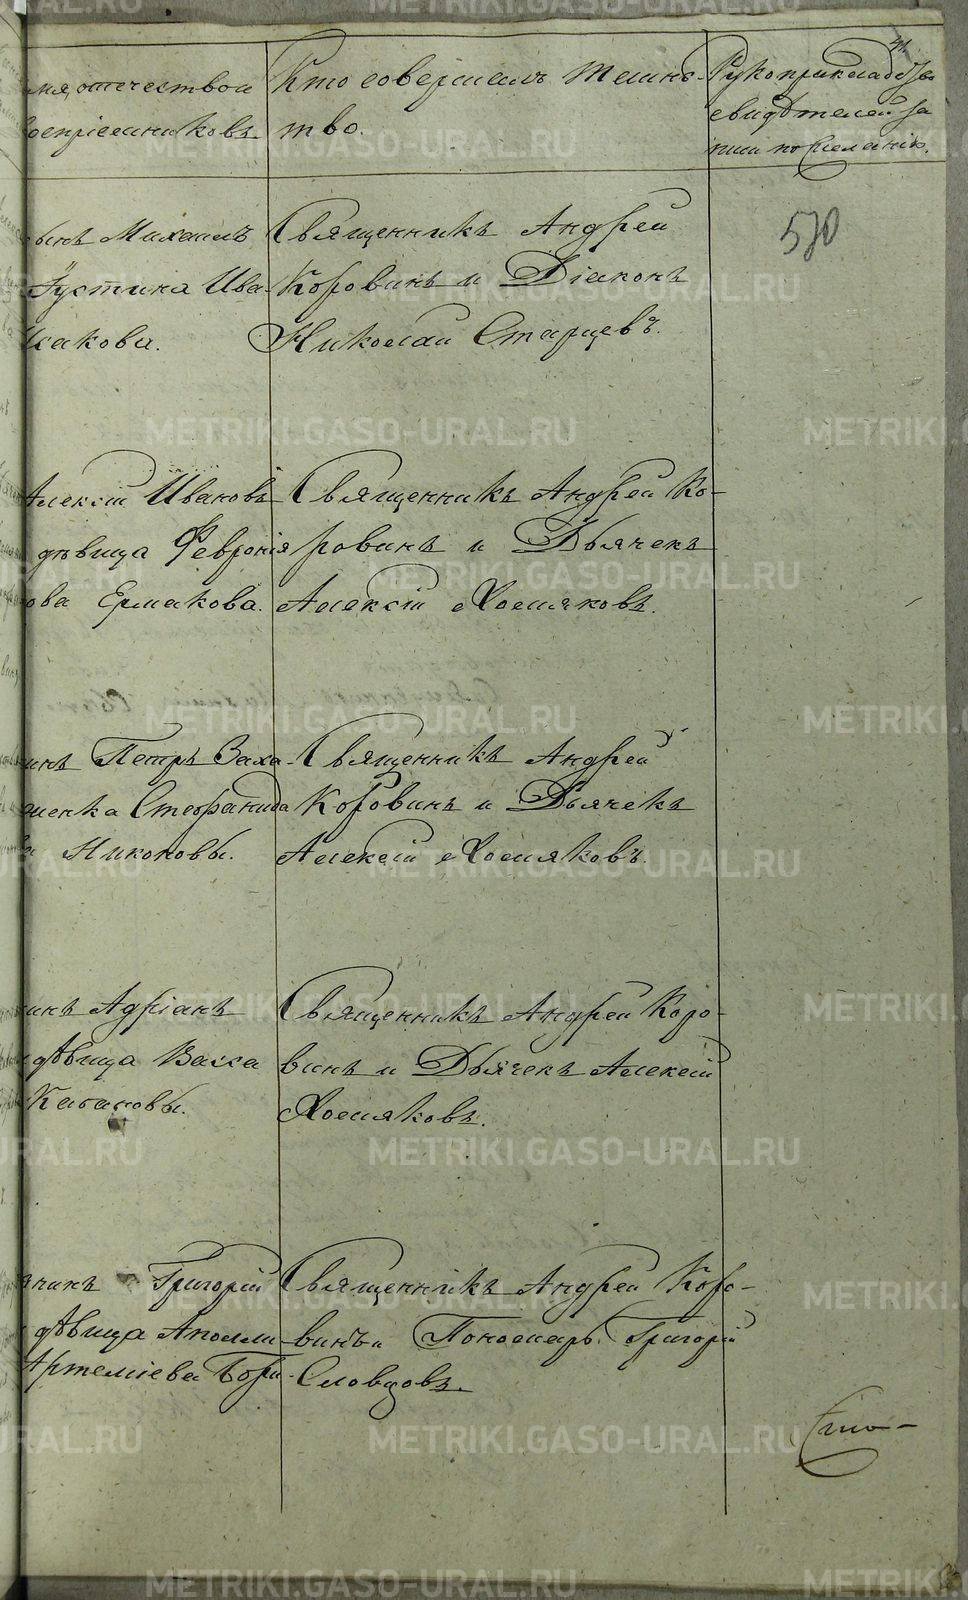 41.
мя, отчество и
воспріемниковъ.
Кто совершалъ таинс-
тво.
Рукоприкладство
свидѣтелей за
писи по желанію.
570
Михаилъ
Іустина Ива-
Исакова.
Священникъ Андрей
Коровинъ и Діаконъ
Николай Старцевъ.
Алексій Ивановъ
дѣвица Февронія
ова Ермакова.
Священникъ Андрей Ко-
ровинъ и Дьячекъ
Алексій Хомяковъ.
инъ Петръ Заха-
женка Стефанида
Никоновы.
Священникъ Андрей
Коровинъ и Дьячекъ
Алексій Хомяковъ.
инъ Адріанъ
дѣвица Васса
Кабановы.
Священникъ Андрей Коро-
винъ и Дьячекъ Алексій
Хомяковъ.
Григорій
дѣвица Аполли-
Артеміева Бори-
Священникъ Андрей Коро-
винъ и Пономарь Григорій
Словцовъ.
METRIKI.GASO-URAL.RU